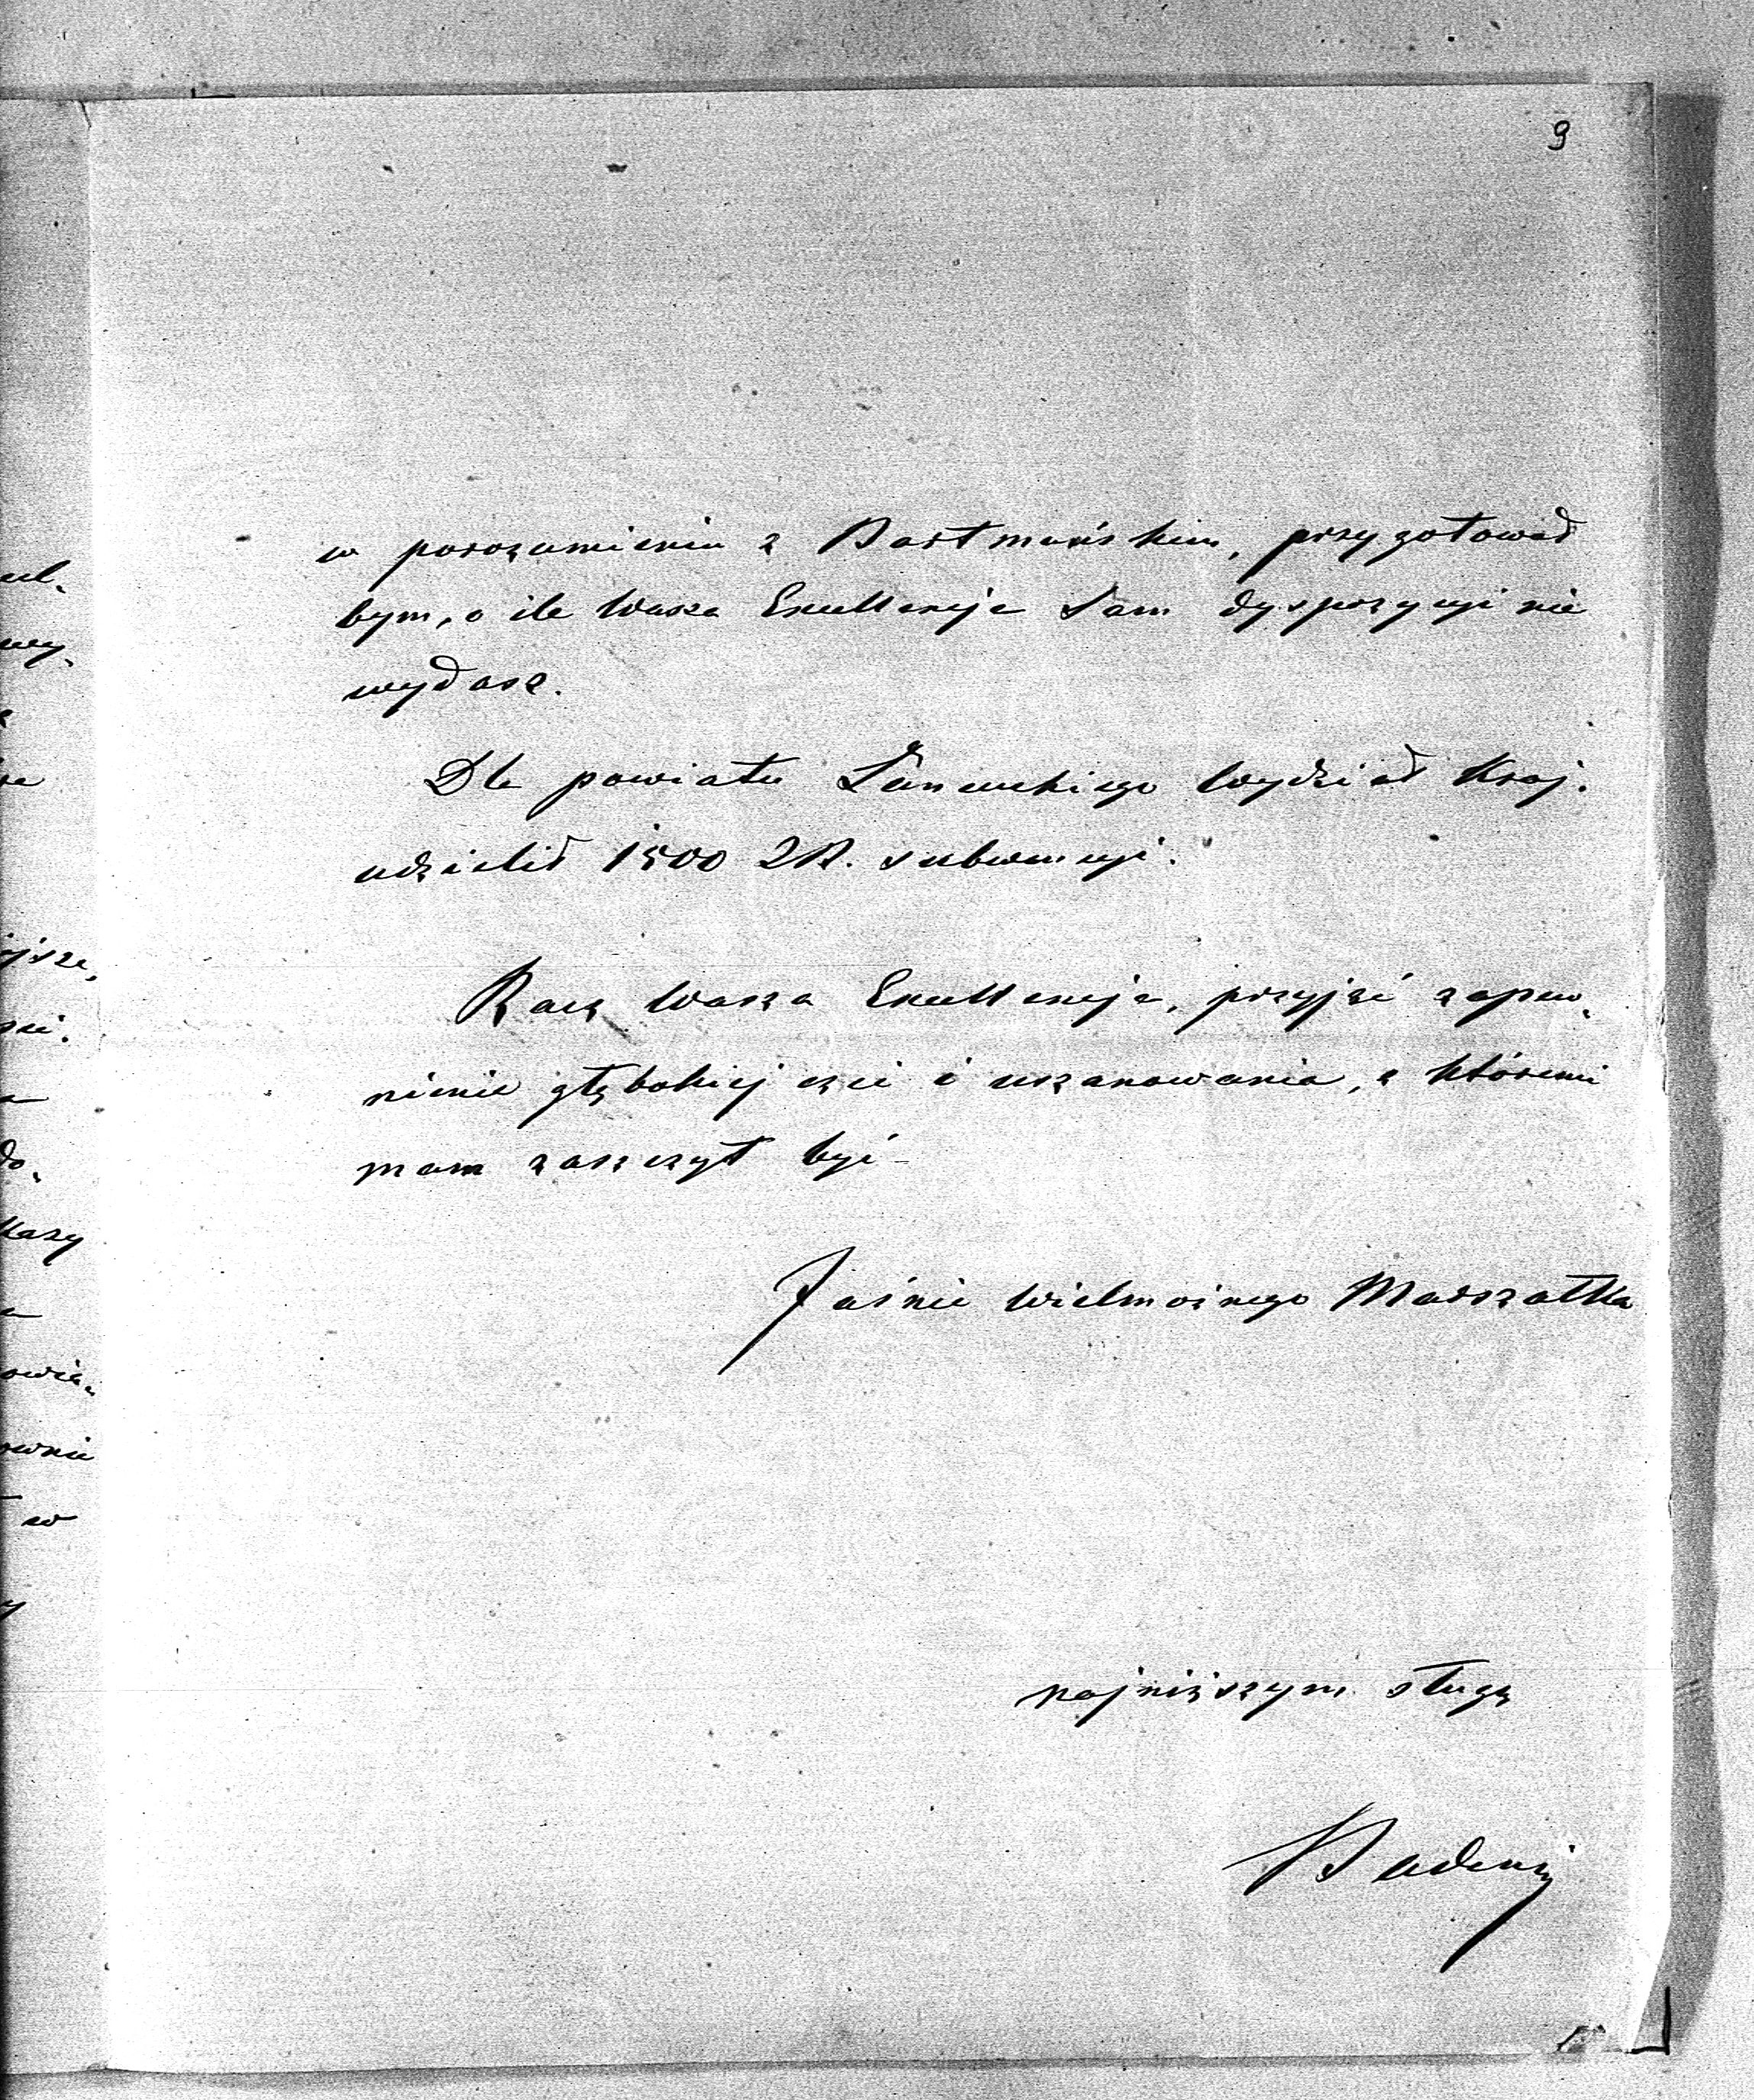 9
w porozumieniu z Bartmańskim, przygotował
bym, o ile Wasza Excellencja Sam dyspozycyi nie
wydasz.
Dla powiatu Łańcuckiego Wydział Kraj.
udzielił 1500 ZR. subwencyi.
Racz Wasza Excellencja, przyjąć zapew„
nienie głębokiej czci i uszanowania, z któremi
mam zaszczyt być
Jaśnie Wielmożnego Marszałka
najniższym sługą
Badeni
ul„
wy„
jsze,
do„
kazy
owie„
ownie
w
y